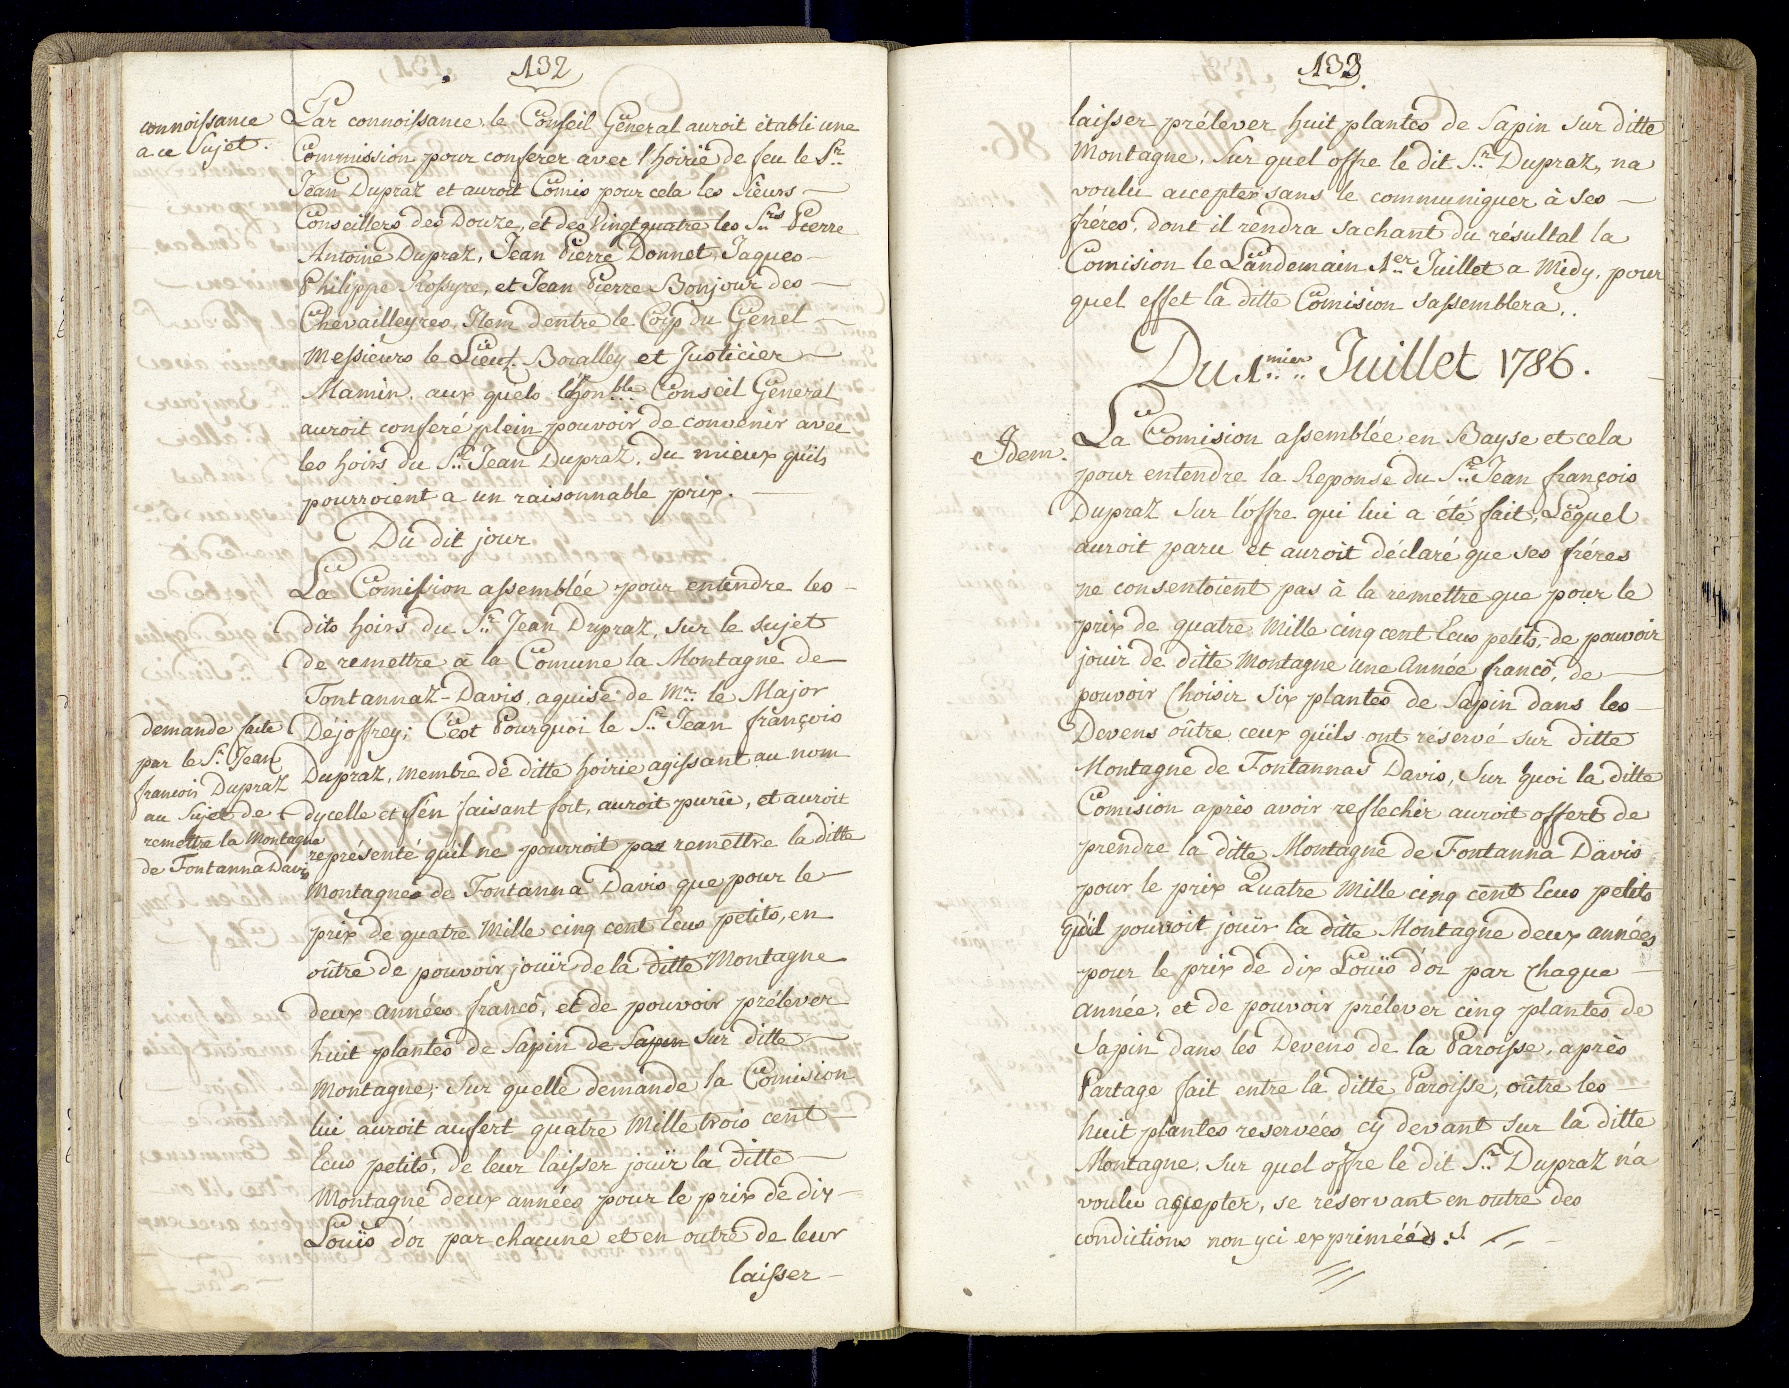 132
connoissance
a ce Sujet.
Par connoissance le Conseil General auroit ètabli une
Commission pour conferer avec l'hoirie de feu le Sr.
Jean Dupraz et auroit Comis pour cela les Sieurs
Conseillers des Douze, et des Vingt quatre les Srs. Pierre
Antoine Dupraz, Jean Pierre Donnet, Jaques
Philippe Rossyre, et Jean Pierre Bonjour des
Chevailleyres, Item d'entre le Corp du Genel
Messieurs le Lieut. Boralley et Justicier
Mamin. aux quels l'hon.ble Conseil General
auroit conferé plein pouvoir de convenir avec
les hoirs du Sr. Jean Dupraz, du mieux qu'ils
pourroient a un raisonnable prix.
Du dit jour
La Comission assemblée pour entendre les
dits hoirs du Sr. Jean Dupraz, sur le sujet
de remettre à la Comune la Montagne de
Fontannaz-Davis, aquise de Mr. le Major
demande faite
par le Sr. Jean
francois Dupraz
au Sujet de
remettre la Montagne
de Fontanna Davis
Dejoffrey; C'est Pourquoi le Sr. Jean françois
Dupraz, membre de ditte hoirie agissant au nom
d'ycelle et s'en faisant fort, auroit parû, et auroit
représenté qu'il ne pourroit pas remettre la ditte
Montagnes de Fontanna Davis que pour le
prix de quatre Mille cinq cent Ecus petits, en
oûtre de pouvoir jouïr de la ditte Montagne
deux Années francô, et de pouvoir prélever
huit plantes de Sapin de Sapin sur ditte
Montagne; Sur quelle demande la Comision
lui auroit aufert quatre Mille trois cent
Ecus petits, de leur laisser jouïr la ditte
Montagne deux années pour le prix de dix
Louïs d'or par chacune et en outre de leur
laisser
133.
laisser prélever huit plantes de Sapin sur ditte
Montagne, Sur quel offre le dit Sr. Dupraz, na
voulu accepter sans le communiquer à ses
fréres, dont il rendra sachant du résultat la
Comision le Landemain 1er. Juillet a Midy, pour
quel effet la ditte Comision s'assemblera.
Du 1.mier Juillet 1786.
Idem.
La Comision assemblée en Bayse et cela
pour entendre la Reponse du Sr. Jean françois
Dupraz sur l'offre qui lui a été fait, Lequel
auroit paru et auroit déclaré que ses fréres
ne consentoient pas à la remettre que pour le
prix de quatre Mille cinq cent Ecus petits, de pouvoir
jouir de ditte Montagne une Année francô, de
pouvoir Choisir Six plantes de Sapin dans les
Devens oûtre ceux qu'ils ont réservé sur ditte
Montagne de Fontannas Davis, Sur quoi la ditte
Comision après avoir reflechir auroit offert de
prendre la ditte Montagne de Fontanna Davis
pour le prix Quatre Mille cinq cent Ecus petits
qu'il pouvoit jouïr la ditte Montagne deux années
pour le prix de dix Louïs d'or par Chaque
année, et de pouvoir prélever cinq plantes de
Sapin dans les Devens de la Paroisse, après
Partage fait entre la ditte Paroisse, oûtre les
huit plantes reservées cÿ devant sur la ditte
Montagne. Sur quel offre le dit Sr. Dupraz n'a
voulu accepter, se réservant en outre des
condictions non yci expriméés.